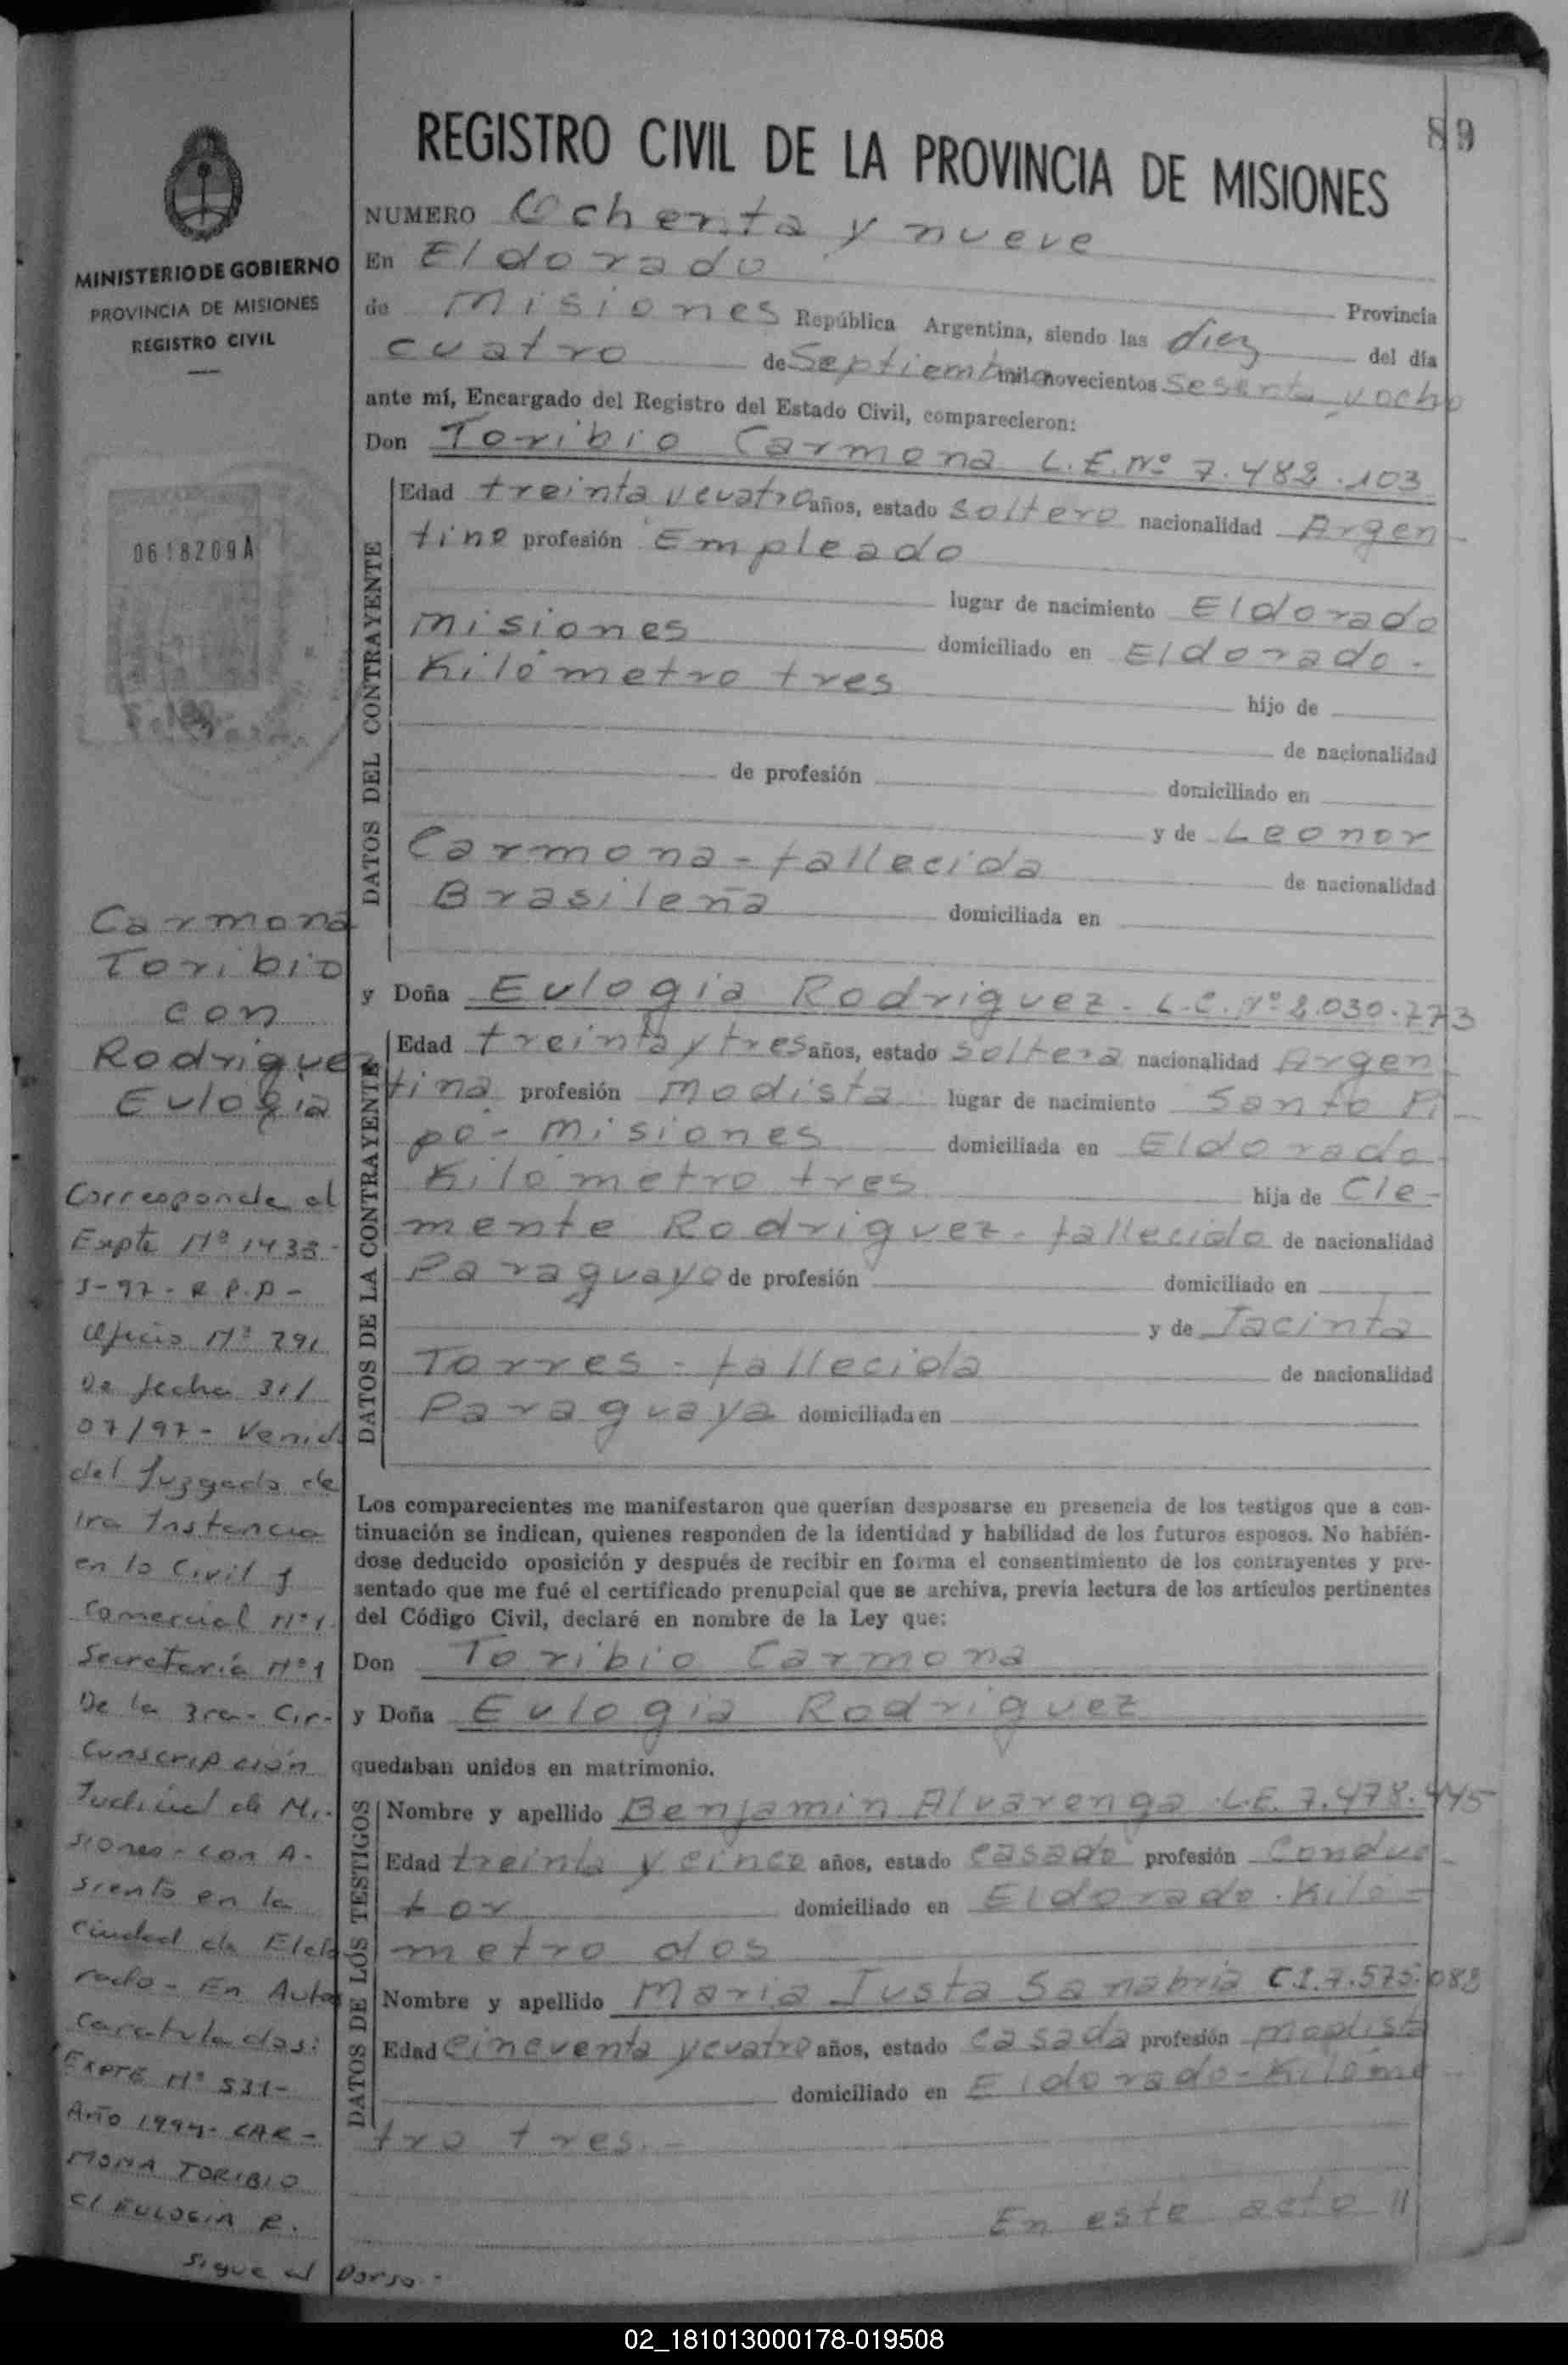 89
REGISTRO CIVIL DE LA PROVINCIA DE MISIONES
NUMERO Ochenta y nueve
En Eldorado
Provincia
de Misiones República Argentina, siendo las diez del día
cuatro de Septiembre mil novecientos Sesenta y ocho
ante mí, Encargado del Registro del Estado Civil, comparecieron:
Don Toribio Carmona L.E.Nº 7.482.103
DATOS DEL CONTRAYENTE
Edad treinta y cuatro años, estado soltero nacionalidad Argen
tino profesión Empleado
lugar de nacimiento Eldorado
Misiones domiciliado en Eldorado.
Kilómetro tres
hijo de
de nacionalidad
de profesión domiciliado en
y de Leonor
Carmona - fallecida de nacionalidad
Brasileña domiciliada en
y Doña Eulogia Rodriguez. L.C. Nº 2.030.773
DATOS DE LA CONTRAYENTE
Edad treinta y tres años, estado soltera nacionalidad Argen
tina profesión Modista lugar de nacimiento Santo Pi-
pó - Misiones domiciliada en Eldorado
Kilómetro tres hija de Cle-
mente Rodriguez - fallecido de nacionalidad
Paraguayo de profesión domiciliado en
y de Jacinta
Torres - fallecida de nacionalidad
Paraguaya domiciliada en
Los comparecientes me manifestaron que querían desposarse en presencia de los testigos que a con-
tinuación se indican, quienes responden de la identidad y habilidad de los futuros esposos. No habién-
dose deducido oposición y después de recibir en forma el consentimiento de los contrayentes y pre-
sentado que me fué el certificado prenupcial que se archiva, previa lectura de los artículos pertinentes
del Código Civil, declaré en nombre de la Ley que:
Don Toribio Carmona
y Doña Eulogia Rodriguez
quedaban unidos en matrimonio.
DATOS DE LOS TESTIGOS
Nombre y apellido Benjamin Alvarenga L.E. 7.478.445
Edad treinta y cinco años, estado casado profesión Conduc-
tor domiciliado en Eldorado. Kiló-
metro dos
Nombre y apellido Maria Justa Sanabria C.I. 7.575.082
Edad cincuenta y cuatro años, estado casada profesión modista
domiciliado en Eldorado - Kilóme
tro tres.-
En este acto //
MINISTERIO DE GOBIERNO
PROVINCIA DE MISIONES
REGISTRO CIVIL
0618209A
Carmona
Toribio
con
Rodriguez
Eulogia
Corresponde al
Expte Nº 1433-
J-97- R.P.P-
Oficio Nº 291
De fecha 31/
07/97- Venid.
del Juzgado de
1ra Instancia
en lo Civil y
Comercial Nº1
Secretaría Nº1
De la 3ra- Cir-
cunscripción
Judicial de Mi-
siones- con A-
siento en la
Ciudad de Eldo
rado- En Autos
Caratulados:
Expte Nº 531-
Año 1994- CAR-
MONA TORIBIO
C/ EULOGIA R.
Sigue al Dorso-
02_181013000178-019508